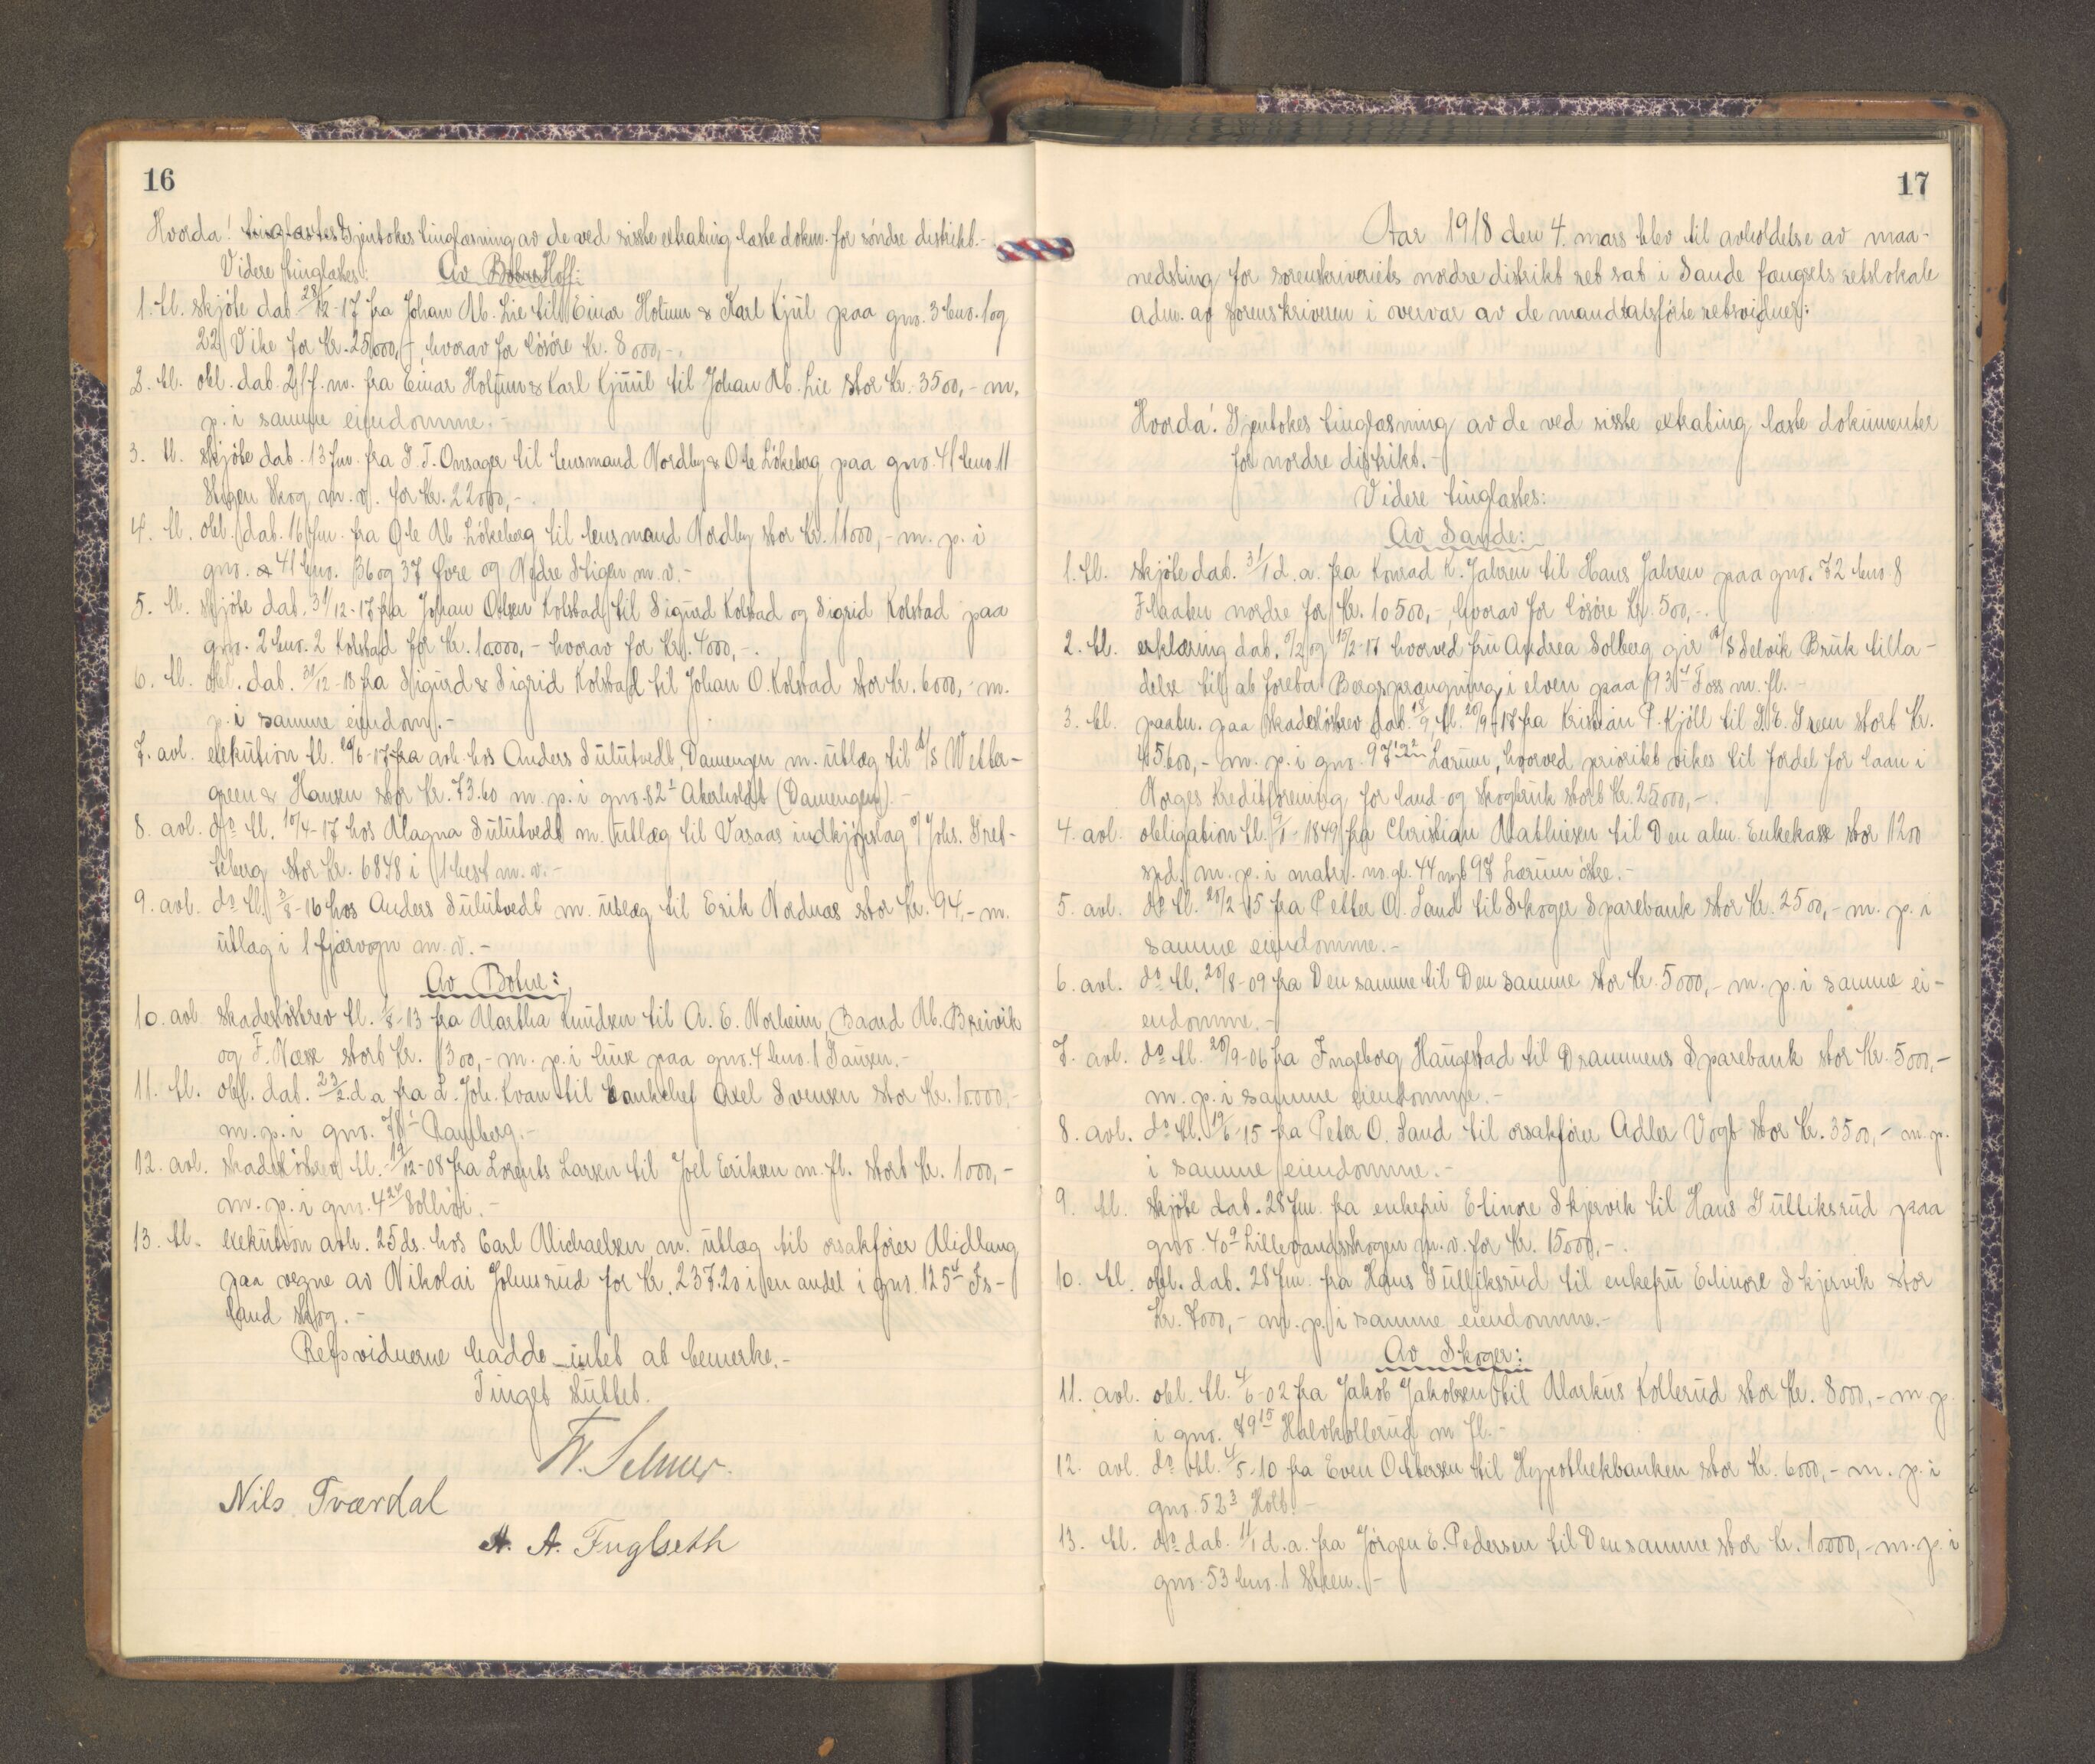 16
Hvorda! Gjentokes tinglæsning av de ved sisste extrating læste dokm. for söndre distrikt.-
Videre tinglæstes: Av Hoff:
1. tl. skjöte dat. 28/12-17 fra Johan Ab. Lie til Einar Holtum & Karl Kjuul paa gno. 3 bno. 1 og
22 Vike for Kr. 25000,-, hvorav for lösöre Kr. 8000,-.
2. tl. obl. dat. f. m. fra Einar Holtum & Karl Kjuul til Johan Ab. Lie stor Kr. 3500,- m.
p. i samme eiendomme.-
3. tl. skjöte dat. 13 fm. fra J. T. Onsager til lensmand Nordby & Ole Lökeberg paa gno. 41 bno. 11
Stigen Skog m. v. for Kr. 22000,-.
4. tl. obl. dat. 16 fm. fra Ole Ab Lökeberg til lensmand Nordby stor Kr. 11000,- m. p. i
gno. 41 bno. 36 og 37 övre og Nedre Stigen m. v.-
5. tl. skjöte dat. 31/12-17 fra Johan Olsen Kolstad til Sigurd Kolstad og Sigrid Kolstad paa
gno. 2 bno. 2 Kolstad for Kr. 10000,- hvorav for Kr. 4000,-.
6. tl. obl. dat. 31/12-18 fra Sigurd & Sigrid Kolstad til Johan O. Kolstad stor Kr. 6000,- m.
p. i samme eiendom.-
7. avl. exekution tl. 20/6-17 fra avh. hos Anders Sulutvedt, Damengen m. utlæg til A/S Wetter-
green & Hansen stor Kr. 73.60 m. p. i gno. 82 Akerholdt (Damengen).-
8. avl. do tl. 10/4-17 hos Magna Sulutvedt m. utlæg til Vasaas indkjöpslag v/ Johs. Gret-
teberg stor Kr. 6878 i 1 hest m. v.-
9. avl. do tl. 3/8-16 hos Anders Sulutvedt m. utlæg til Erik Nordnæs stor Kr. 94,- m.
utlæg i 1 fjærvogn m. v.-
Av Botne:
10. avl skadeslösbrev tl. 1/8-13 fra Martha Knudsen til A. E. Norheim, Baard Ab. Breivik
og F. Næss stort Kr. 1300,- m. p. i huse paa gno. 4 bno. 1 Gausen.-
11. tl. obl. dat. 23/2 d. a fra L. Joh. Kvan til bankchef Axel Svensen stor Kr. 10000.-
m. p. i gno. Ramberg.-
12. avl. skadeslösbrev tl. 19/12-08 fra Lorents Larsen til Joel Eriksen m. fl. stort Kr. 1000,-
m. p. i gno. 4 Solhöi.-
13. tl. exekution avh. 25 ds. hos Carl Michaelsen m. utlæg til orsakförer Midlung
paa vegne av Nikolai Johnsrud for Kr. 237.20 i en andel i gno. 125 Is-
land skog.-
Retsvidnerne hadde intet at bemerke.-
Tinget sluttet.
Fr. Selmer.
Nils Tværdal
A. A. Fuglseth
17
Aar 1918 den 4. mars blev til avholdelse av maa-
nedsting for sorenskriveriets nordre distrikt ret sat i Sande fængsels retslokale
adm. av sorenskriveren i overvær av de mandtalsförte retsvidner:
Hvorda! Gjentokes tinglæsning av de ved sisste extrating læste dokumenter
for nordre distrikt.-
Videre tinglæstes:
Av Sande:
1. tl. skjöte dat. 3/1 d. a. fra Konrad K. Jahren til Hans Jahren paa gno. 72 bno 8
Flaaten nordre for Kr. 10500,-, hvorav for lösöre Kr. 500,-.
2. tl. erklæring dat. 6/2 og 15/2-17 hvorved fru Andrea Solberg gir A/S Selvik Bruk tilla-
delse til at foreta Bergsprængning i elven paa 93 Foss m. fl.-
3. tl. paatn. paa skadeslösbrev dat. 18/9, tl. 20/9-17 fra Kristian P. Kjöll til D. E. Green stort Kr.
45600,- m. p. i gno. 97 Lærum, hvorved prioritet vikes til fordel for laan i
Norges Kreditforening for land- og skogbruk stort Kr. 25000,-.
4. avl. obligation tl. 9/1-1849 fra Christian Mathiesen til Den alm. Enkekasse stor 1200
spd. m. p. i matr. no. gl. 44 nyt 97 Lærum östre.-
5. avl. do tl. 20/2-15 fra Petter O. Sand til Skoger Sparebank stor Kr. 2500,- m. p. i
samme eiendomme.-
6. avl. do tl. 20/8-09 fra Den samme til Den samme stor Kr. 5000,- m. p. i samme ei-
endomme.-
7. avl. do tl. 20/9-06 fra Ingeborg Haugestad til Drammens Sparebank stor Kr. 5000,-
m. p. i samme eiendomme.-
8. avl. do tl. 19/6-15 fra Peter O. Sand til orsakförer Adler Vogt stor Kr. 3500,- m p.
i samme eiendomme.-
9. tl. skjöte dat. 28 fm. fra enkefru Elinore Skjervik til Hans Gulliksrud paa
gno. 40 Lillevandsskogen m. v. for Kr. 15000,-.
10. tl. obl. dat. 28 fm. fra Hans Gulliksrud til enkefru Elinore Skjervik stor
Kr. 7000,- m. p. i samme eiendomme.-
Av Skoger:
11. avl. obl. tl. 4/6-02 fra Jakob Jakobsen til Markus Kollerud stor Kr. 8000,- m p.
i gno. 89 15 Halvkollerud m fl.-
12. avl. do obl. 4/5-10 fra Even Ottersen til Hypothekbanken stor Kr. 6000,- m. p. i
gno. 52 3 Holt.-
13. tl. do dat. 11/1 d. a. fra Jörgen E. Pedersen til Den samme stor Kr. 10000,- m. p. i
gno. 53 bno. 1 Steen.-